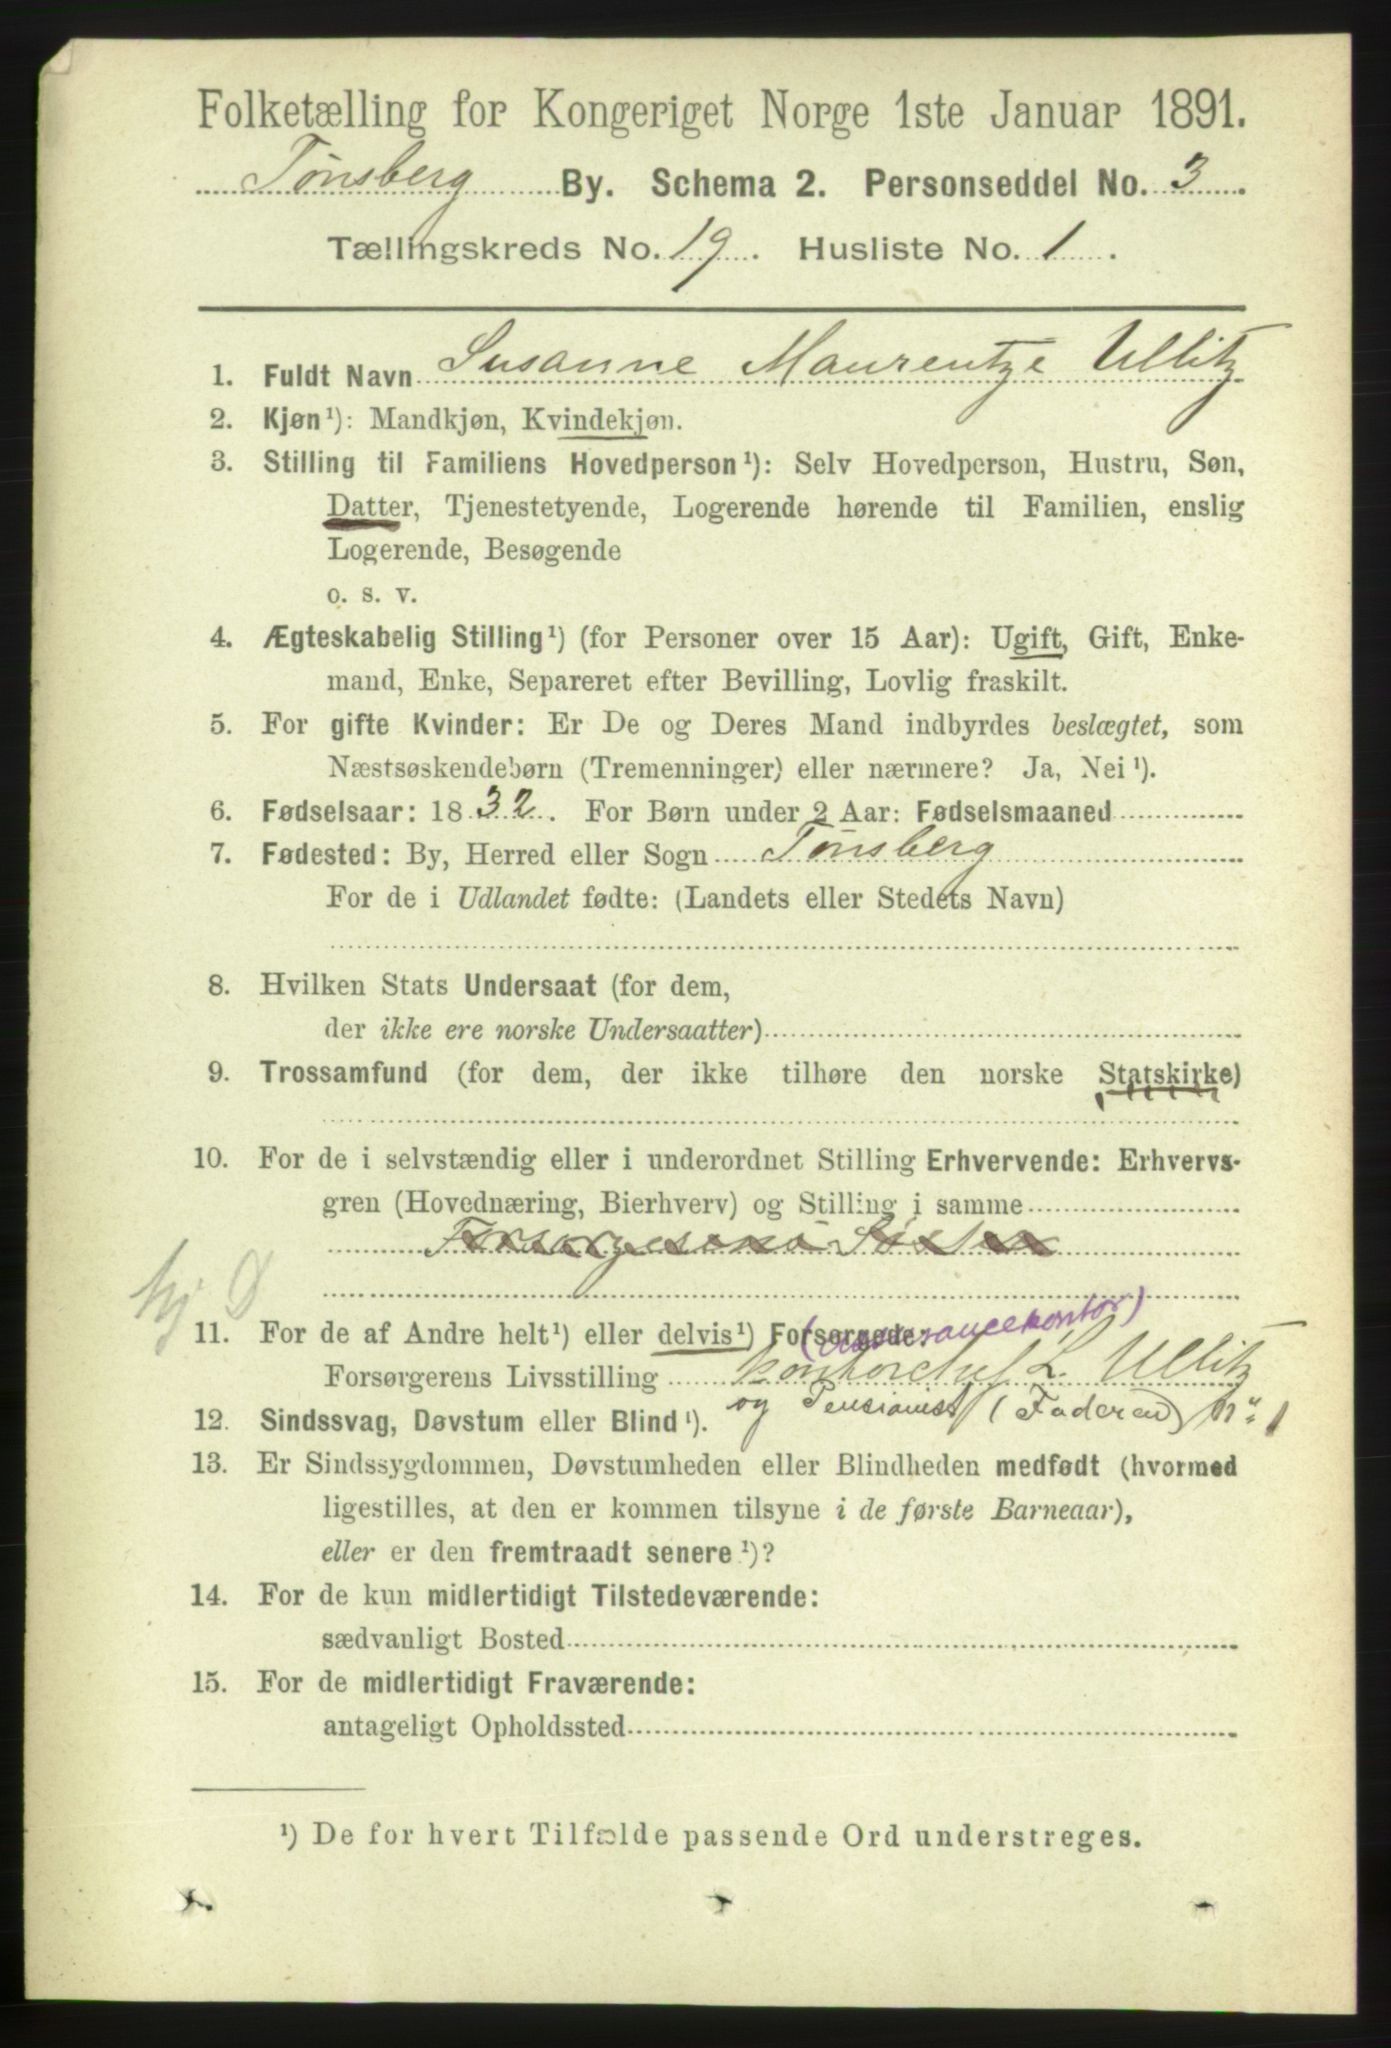 Folketælling for Kongeriget Norge 1ste Januar 1891.
Tønsberg By. Schema 2. Personseddel No. 3.
Tællingskreds No. 19. Husliste No. 1.
1. Fuldt Navn Susanne Maurentze Ullitz
2. Kjøn¹): Mandkjøn, Kvindekjøn.
3. Stilling til Familiens Hovedperson¹): Selv Hovedperson, Hustru, Søn,
Datter, Tjenestetyende, Logerende hørende til Familien, enslig
Logerende, Besøgende
o. s. v.
4. Ægteskabelig Stilling¹) (for Personer over 15 Aar): Ugift, Gift, Enke-
mand, Enke, Separeret efter Bevilling, Lovlig fraskilt.
5. For gifte Kvinder: Er De og Deres Mand indbyrdes beslægtet, som
Næstsøskendebørn (Tremenninger) eller nærmere? Ja, Nei¹).
6. Fødselsaar: 1832. For Børn under 2 Aar: Fødselsmaaned
7. Fødested: By, Herred eller Sogn Tønsberg
For de i Udlandet fødte: (Landets eller Stedets Navn)
8. Hvilken Stats Undersaat (for dem,
der ikke ere norske Undersaatter)
9. Trossamfund (for dem, der ikke tilhøre den norske Statskirke)
10. For de i selvstændig eller i underordnet Stilling Erhvervende: Erhvervs-
gren (Hovednæring, Bierhverv) og Stilling i samme
hj D
(Assurancekontor)
11. For de af Andre helt¹) eller delvis¹) Forsørgede:
Forsørgerens Livsstilling Kontorchef L. Ullitz
og Pensionist (Faderen) No 1
12. Sindssvag, Døvstum eller Blind¹).
13. Er Sindssygdommen, Døvstumheden eller Blindheden medfødt (hvormed
ligestilles, at den er kommen tilsyne i de første Barneaar),
eller er den fremtraadt senere¹)?
14. For de kun midlertidigt Tilstedeværende:
sædvanligt Bosted
15. For de midlertidigt Fraværende:
antageligt Opholdssted
¹) De for hvert Tilfælde passende Ord understreges.